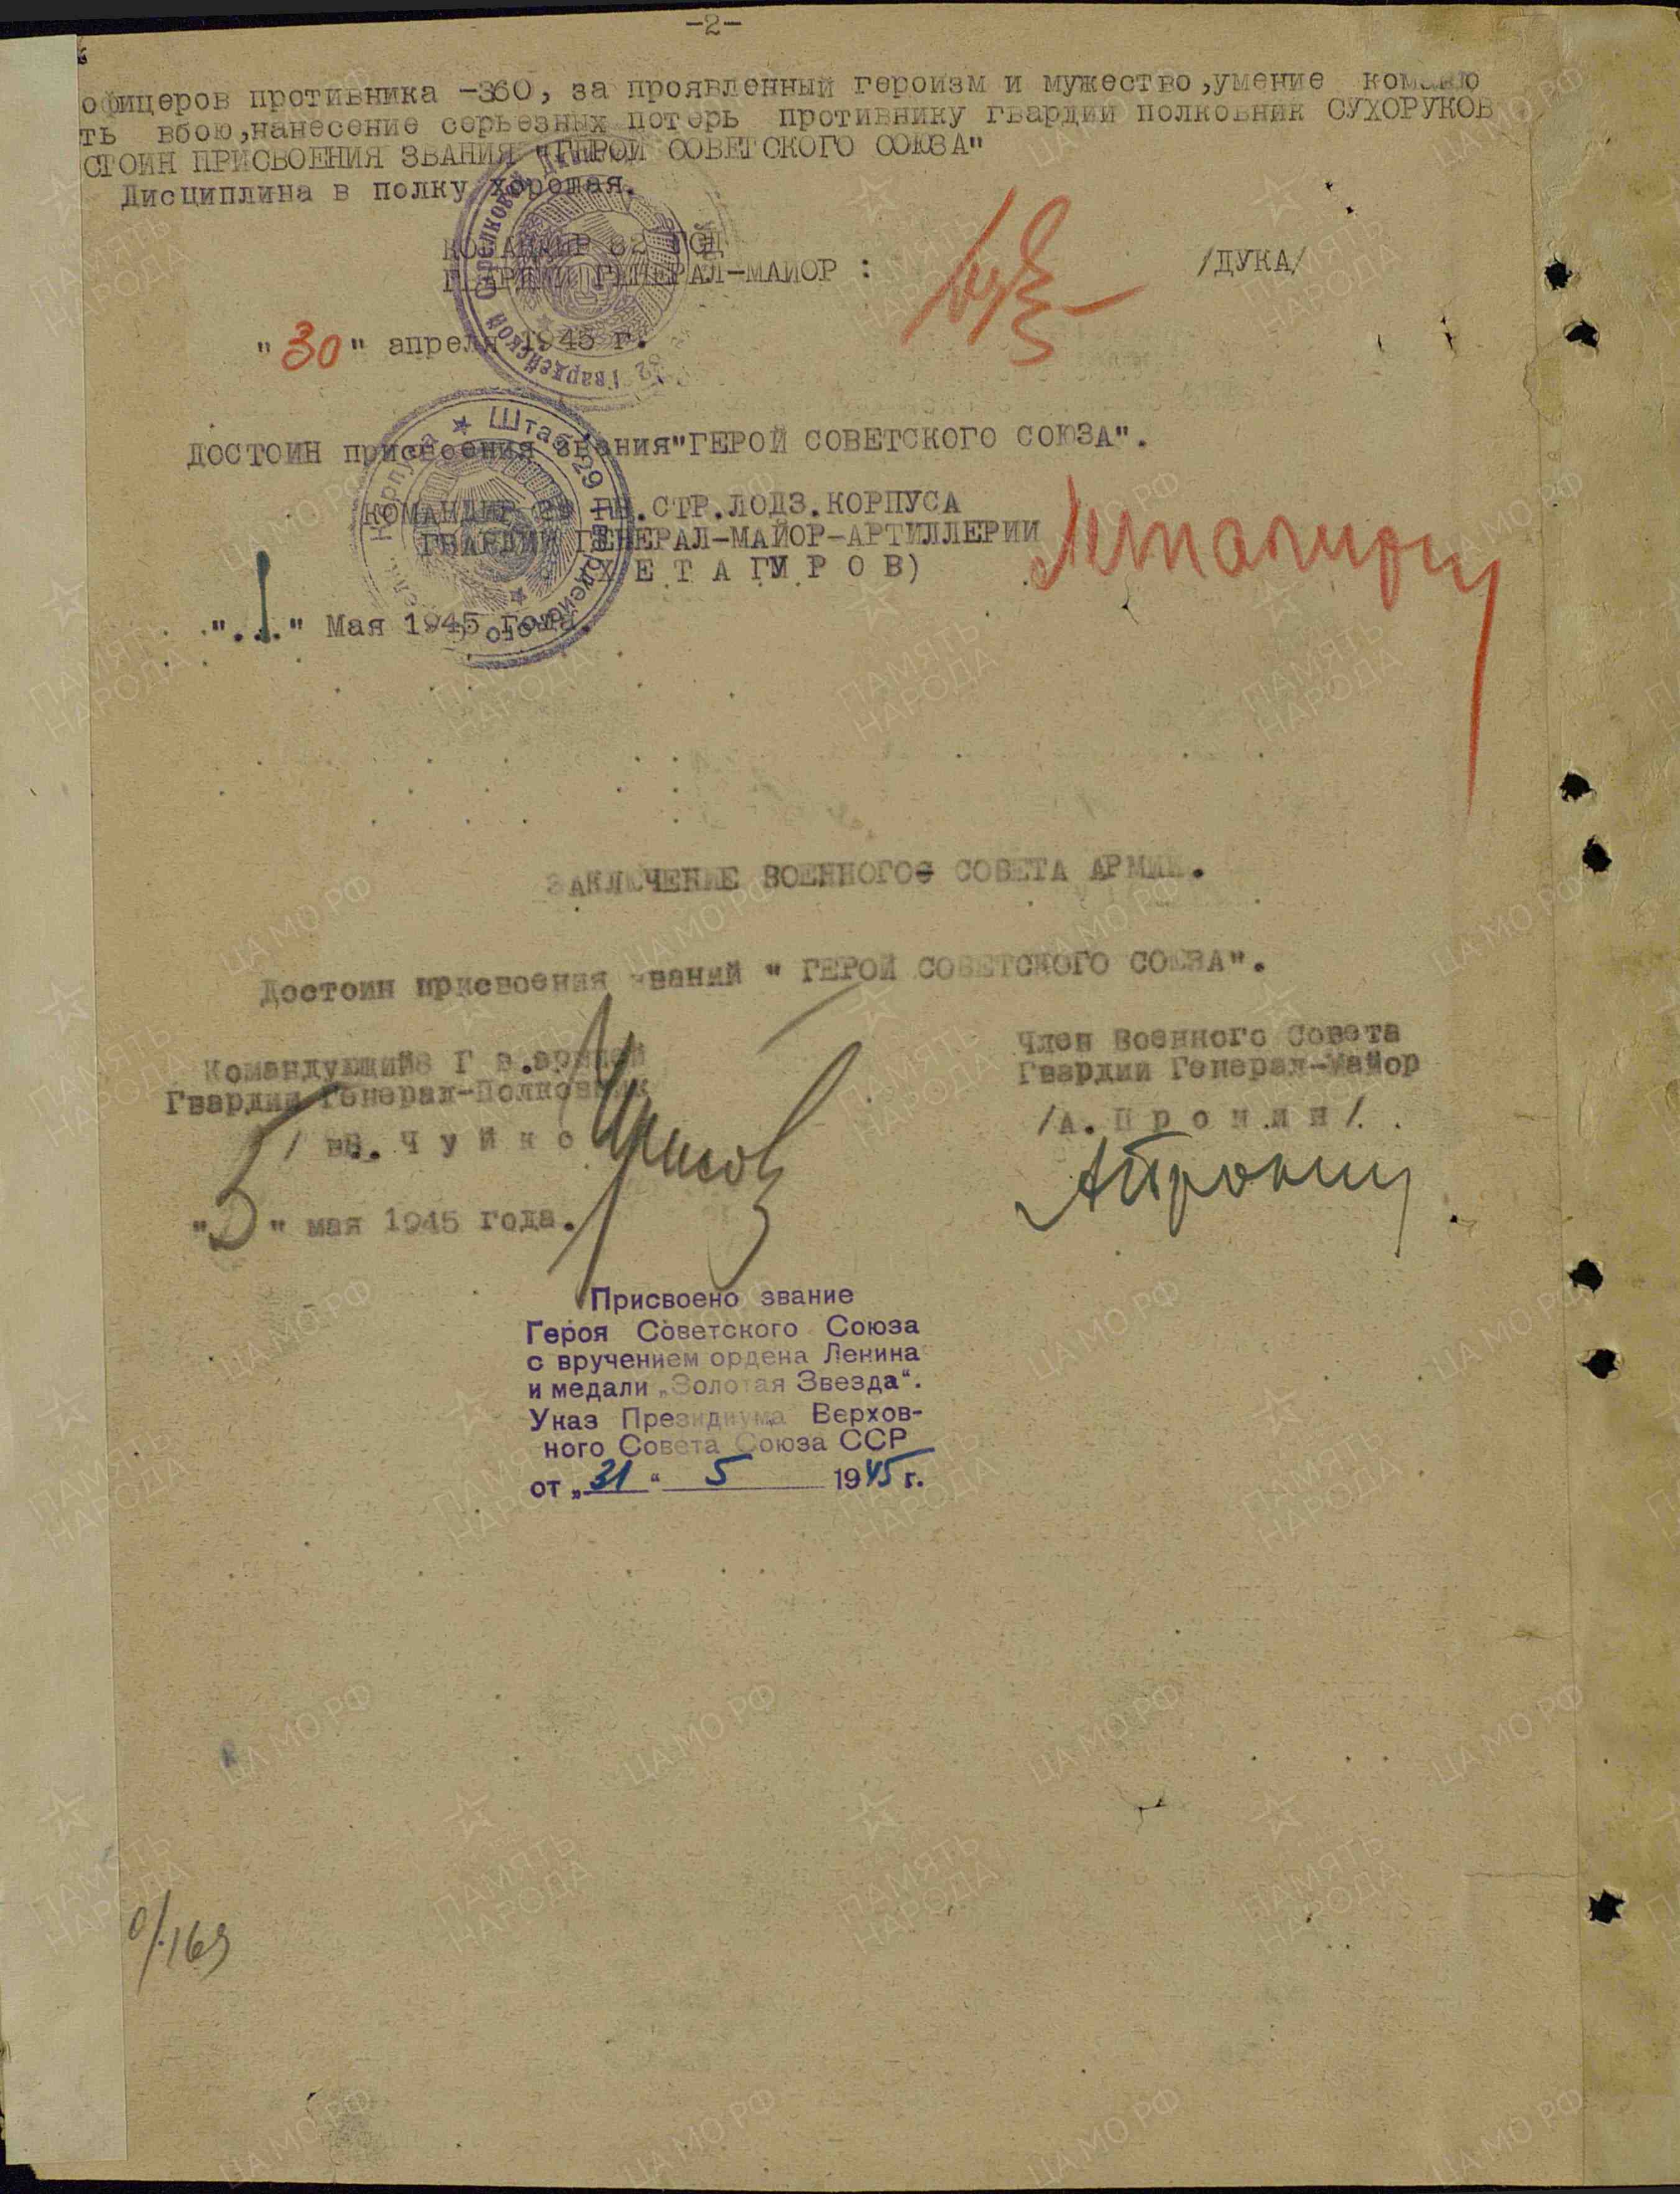 -2-
офицеров противника -360, за проявленный героизм и мужество,умение
ть вбою,нанесение серьезных потерь противнику гвардии полковник СУХОРУКОВ
СТОИН ПРИСВОЕНИЯ ЗВАНИЯ "ГЕРОЙ СОВЕТСКОГО СОЮЗА"
Дисциплина в полку хорошая.
КОМАНДИР 82 ГСД
ГВАРДИИ ГЕНЕРАЛ-МАЙОР :
/ДУКА/
"30" апреля 1945 г.
ДОСТОИН присвоения звания"ГЕРОЙ СОВЕТСКОГО СОЮЗА".
КОМАНДИР 29 ГВ.СТР.ЛОДЗ.КОРПУСА
ГВАРДИИ ГЕНЕРАЛ-МАЙОР-АРТИЛЛЕРИИ
(Х Е Т А Г У Р О В)
Хетагуров
".1." Мая 1945 года.
ЗАКЛЮЧЕНИЕ ВОЕННОГО СОВЕТА АРМИИ.
Достоин присвоения званий " ГЕРОЙ СОВЕТСКОГО СОЮЗА".
Командующий Г в.армией
Гвардии Генерал-Полковник
/ В. Ч у й к о
Чуйков
"5" мая 1945 года.
Член Военного Совета
Гвардии Генерал-Майор
/А. П р о н и н/.
АПронин
Присвоено звание
Героя Советского Союза
с вручением ордена Ленина
и медали „Золотая Звезда“.
Указ Президиума Верхов-
ного Совета Союза ССР
от „31“ 5 1945 г.
0/169
ПАМЯТЬ
НАРОДА
ЦА МО РФ